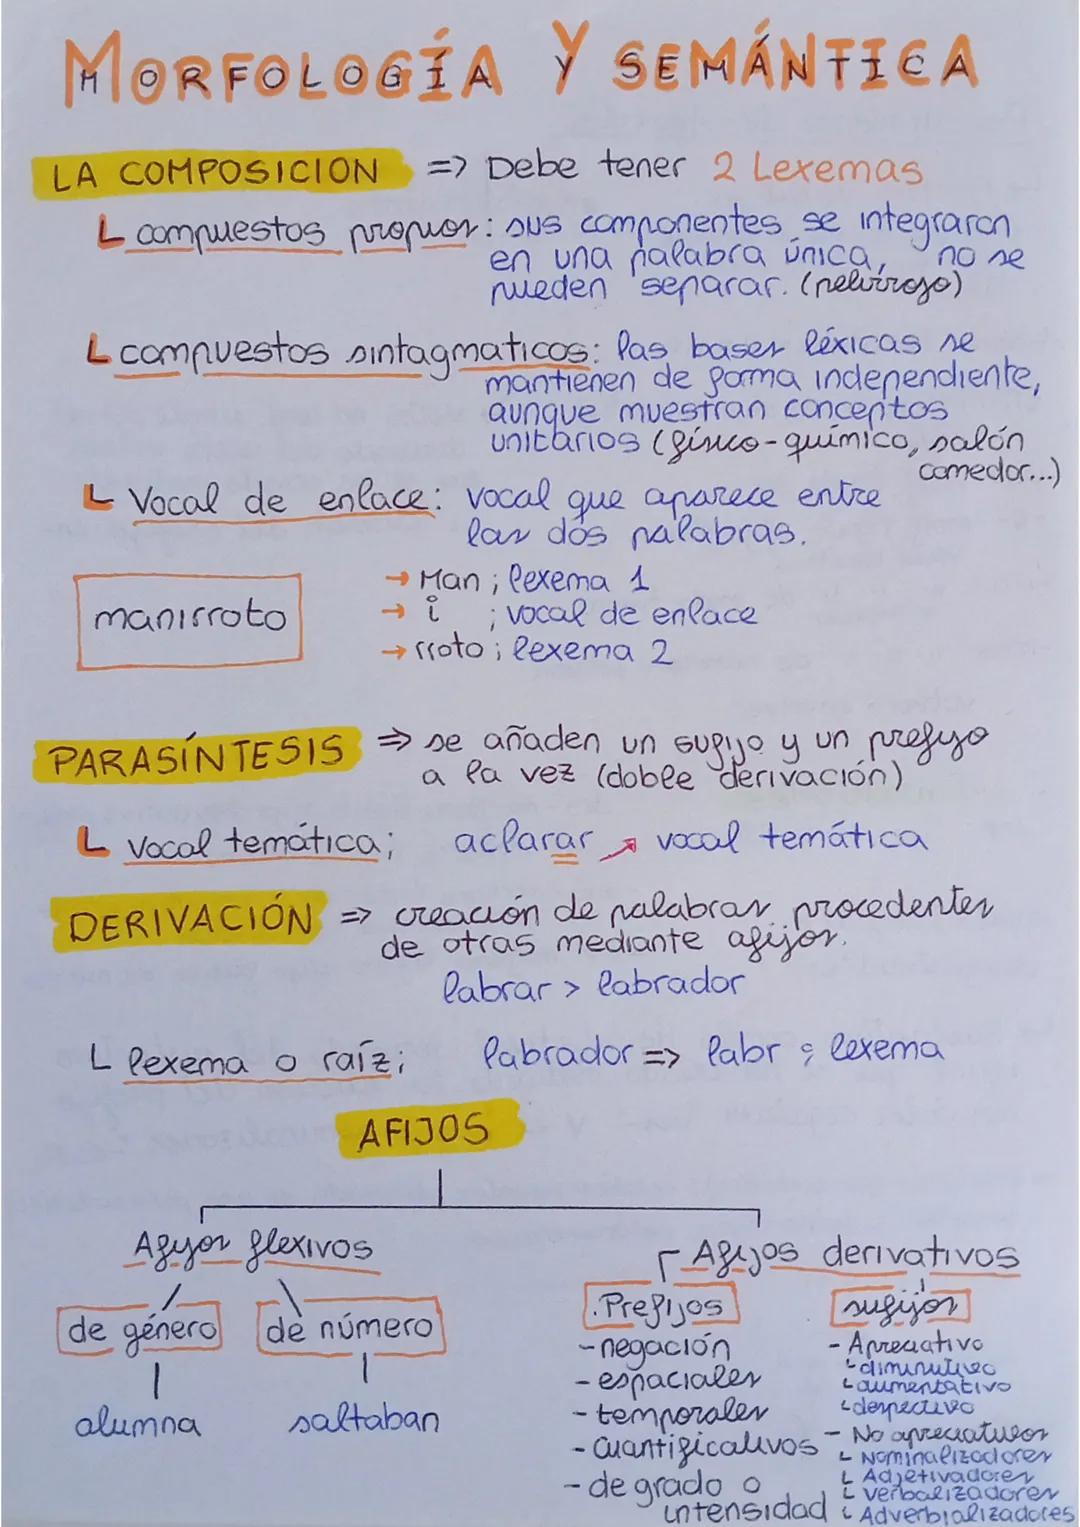 MORFOLOGÍA Y SEMÁNTICA
LA COMPOSICION => Debe tener 2 Lexemas
compuestos propios: sus componentes se integraron
en una palabra única, no se
pueden separar. (pelirrojo)
compuestos sintagmaticos: las bases léxicas se
mantienen de forma independiente,
aunque muestran conceptos
unitarios (físico-químico, salón
comedor...)
Vocal de enlace: vocal que aparece entre
las dos palabras.
manirroto
→ Man ; lexema 1
→ i ; vocal de enlace
→ rroto ; lexema 2
PARASÍNTESIS => se añaden un sufijo y un prefijo
a la vez (doble derivación)
Vocal temática; aclarar → vocal temática
DERIVACIÓN => creación de palabras procedentes
de otras mediante afijos.
labrar > labrador
lexema o raíz; labrador => labr ; lexema
AFIJOS
Afijos flexivos
de género
de número
alumna
saltaban
Afijos derivativos
.Prefijos
- negación
- espaciales
- temporales
- cuantificativos
- de grado o
intensidad
sufijos
- Apreciativo
diminutivo
aumentativo
despectivo
- No apreciativos
Nominalizadores
Adjetivadores
verbalizadores
Adverbializadores